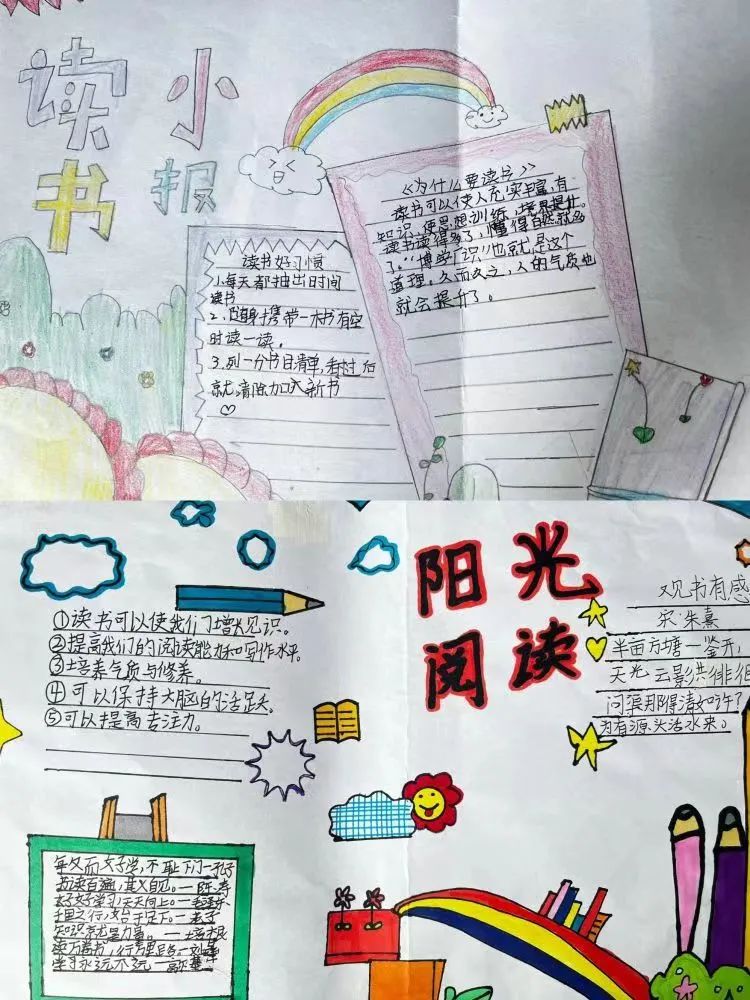 读书小报
《为什么要读书》
读书可以使人充实丰富,有
知识,使思想训练,境界提升。
读书读得多了,懂得自然就多
了。“博学广识”也就是这个
道理。久而久之,人的气质也
就会提升了。
读书好习惯
1、每天都抽出时间
读书
2、随身携带一本书有空
时读一读。
3、列一分书目清单,看过后
就清除加入新书
阳光
阅读
①读书可以使我们增长见识。
②提高我们的阅读能力和写作水平。
③培养气质与修养。
④可以保持大脑的活跃。
⑤可以提高专注力。
观书有感
宋·朱熹
半亩方塘一鉴开,
天光云影共徘徊
问渠那得清如许?
为有源头活水来。
每文而好学,不耻下问—孔子
书读百遍,其义自见。—陈寿
好好学习,天天向上。—毛泽东
千里之行,始于足下。—老子
知识就是力量。—培根
读万卷书,行万里路。—刘彝
学习永远不晚—高尔基